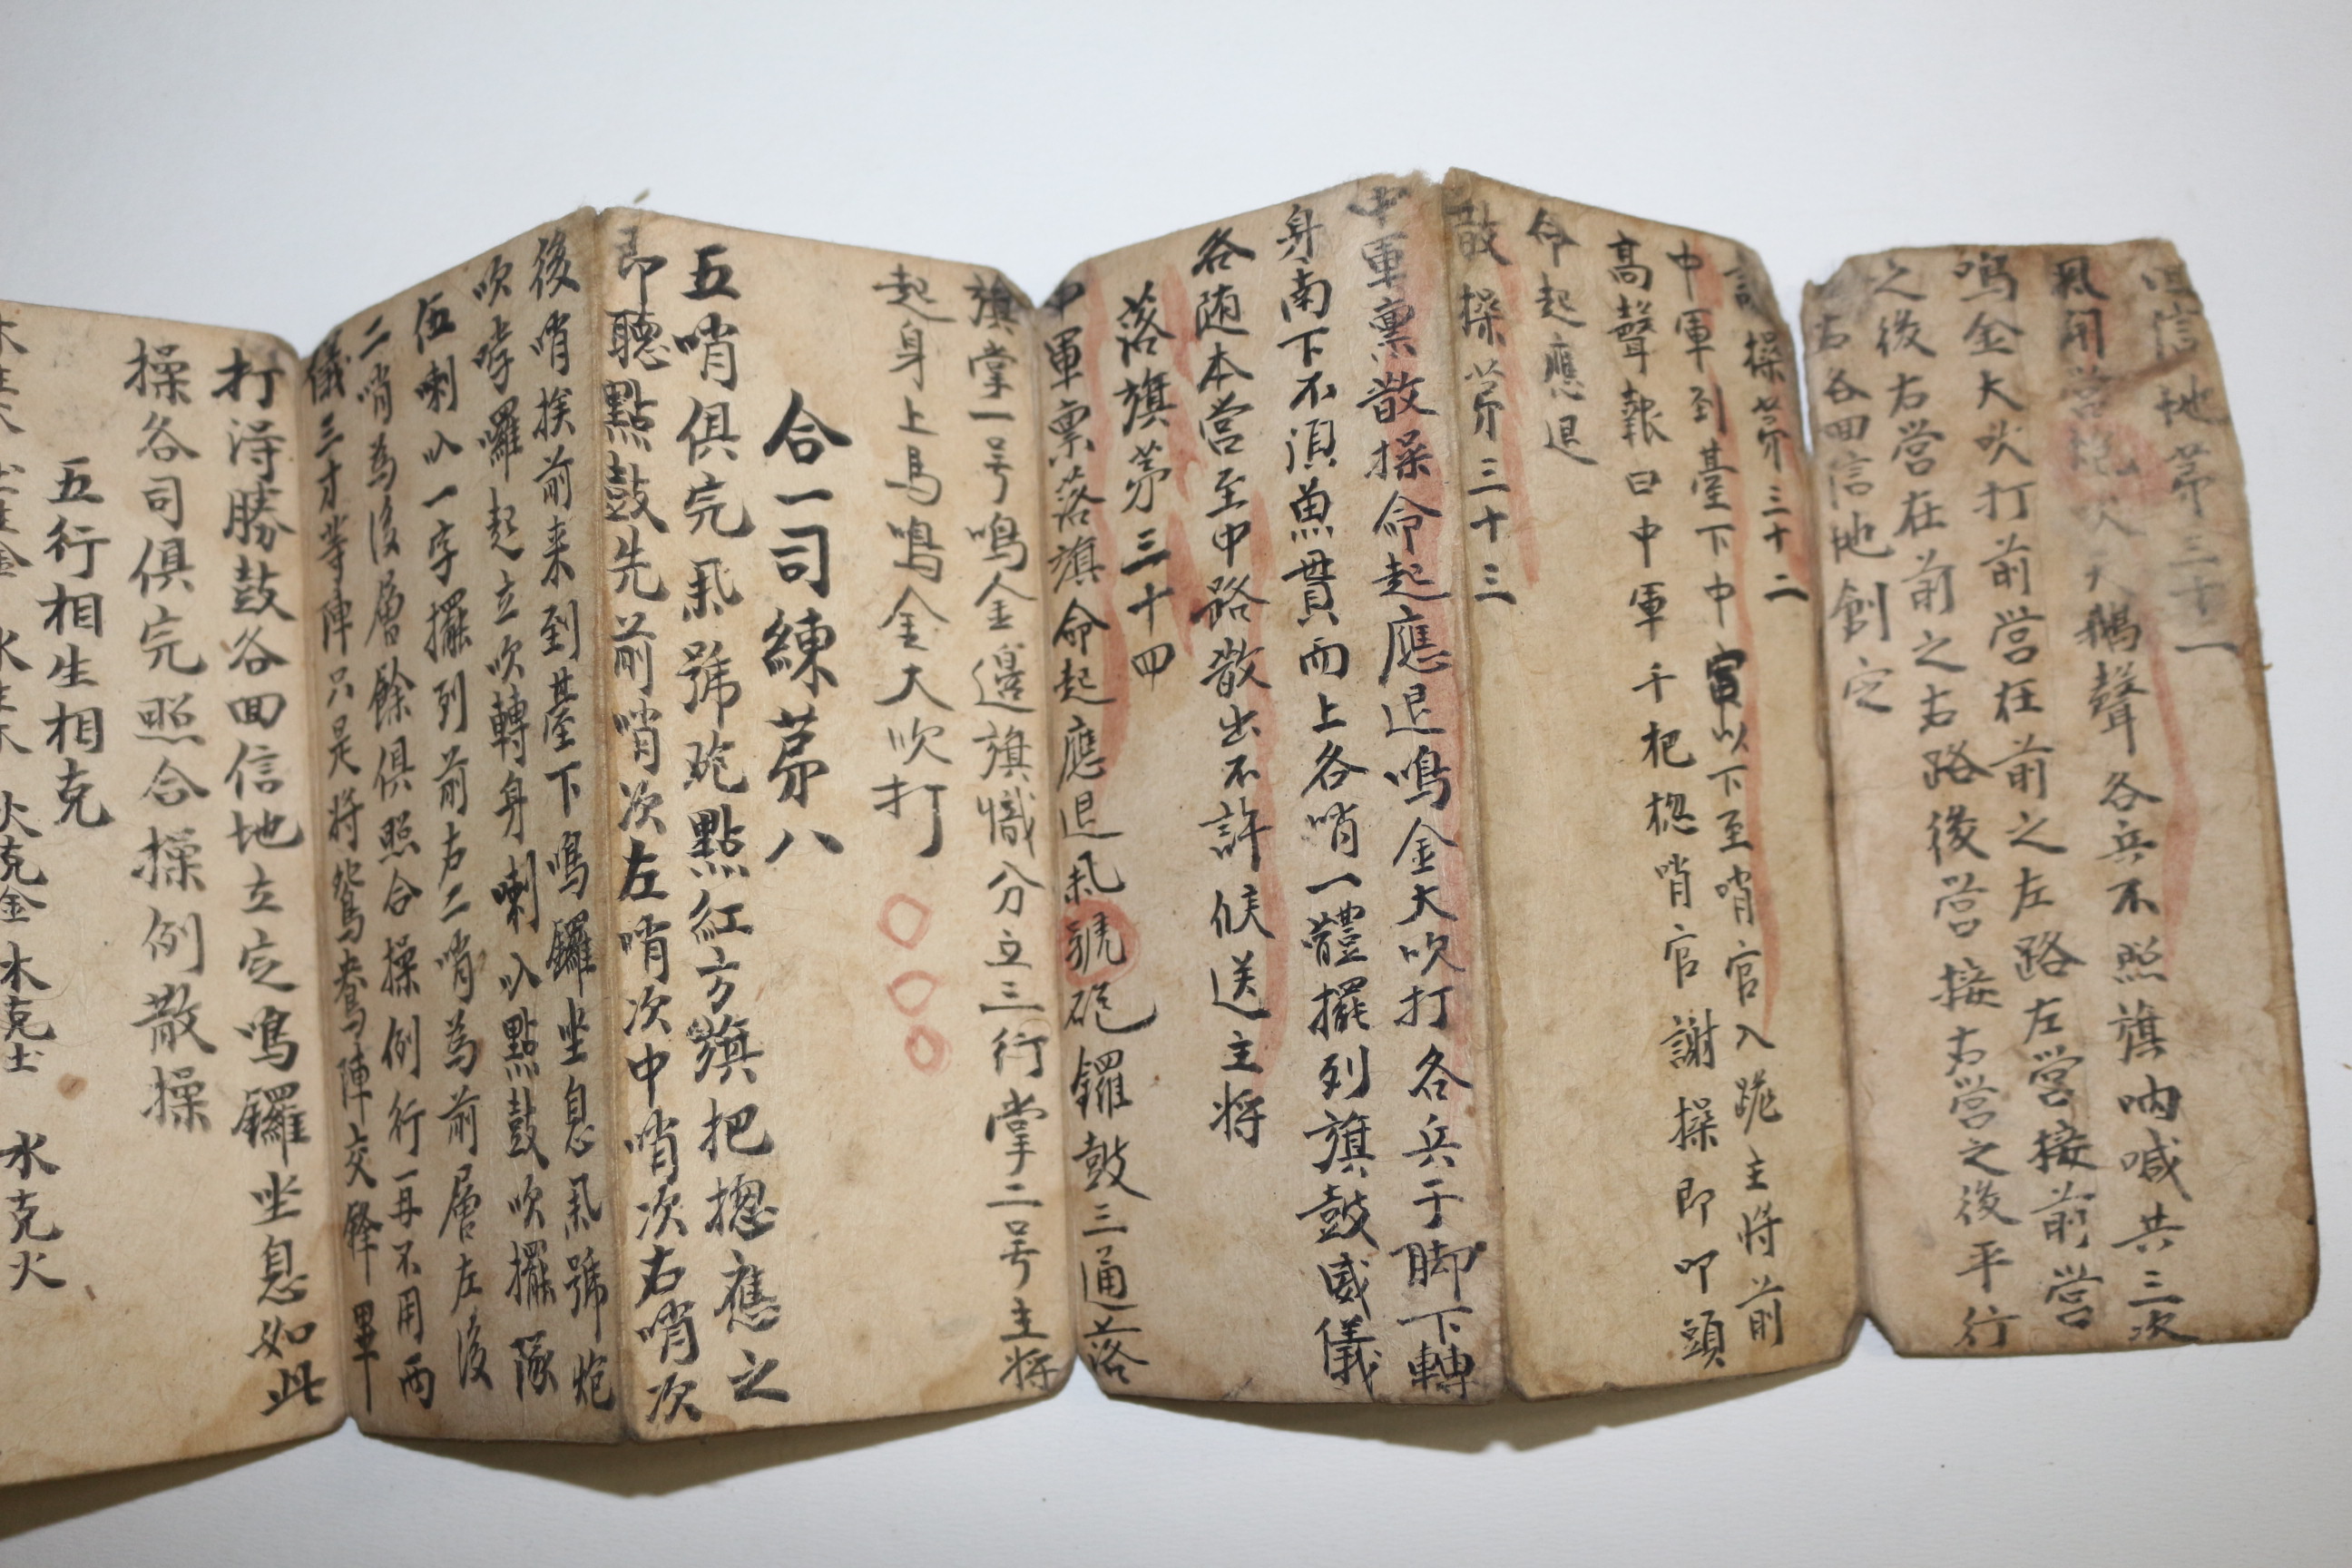 回信地苐三十一
風開營砲吹天鵝聲各兵不照旗吶喊共三次
鳴金大吹打前営在前之左路左營接前営
之後右営在前之右路後営接右営之後平行
右各回信地創定
操苐三十二
中軍到臺下中軍以下至哨官入跪主將前
高聲報曰中軍千把揔哨官謝操即叩頭
命起應退
散操苐三十三
中軍稟散操命起應退鳴金大吹打各兵于脚下轉
身南下不湏魚貫而上各哨一軆擺列旗鼓威儀
各随本営至中路散出不許候送主将
落旗苐三十四
中軍稟落旗命起應退風號砲鑼鼓三通落
旗掌一号鳴金邊旗幟分立三行掌二号主将
起身上馬鳴金大吹打
合一司練苐八
五哨俱完風號砲點紅方旗把揔應之
即聽點鼓先前哨次左哨次中哨次右哨次
後哨挨前来到基臺下鳴鑼坐息風號炮
吹哱囉起立吹轉身喇叭點鼓吹擺隊
伍喇叭一字擺列前右二哨為前層左後
二哨為後層餘俱照合操例行再不用兩
儀三才等陣只是将鴛鴦陣交鋒畢
打淂勝鼓各回信地立定鳴鑼坐息如此
操各司俱完照合操例散操
五行相生相克
火克金 木克土 水克火